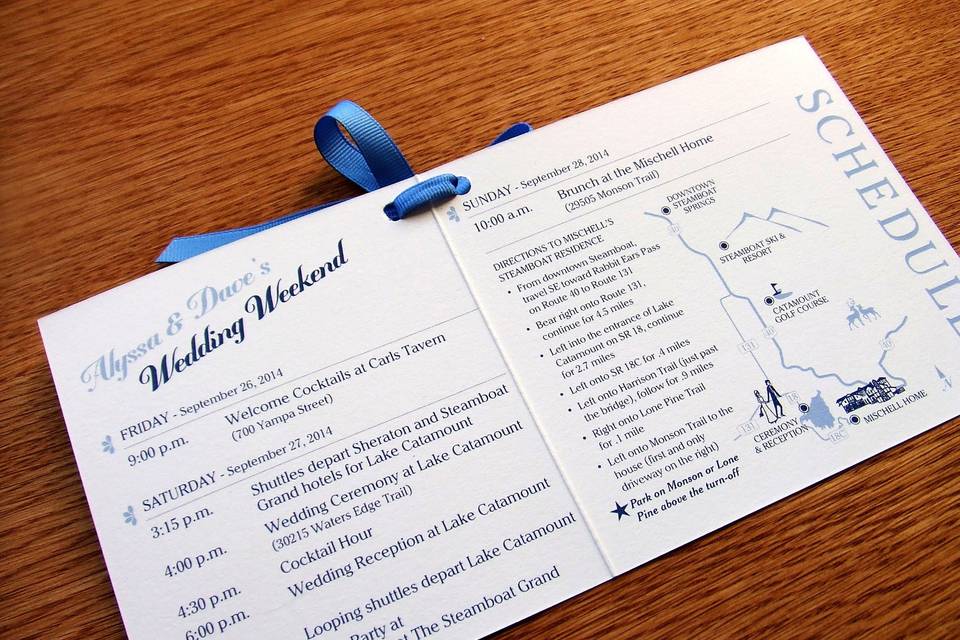 Alyssa & Dave's
Wedding Weekend
FRIDAY - September 26, 2014
9:00 p.m. Welcome Cocktails at Carls Tavern
(700 Yampa Street)
SATURDAY - September 27, 2014
3:15 p.m. Shuttles depart Sheraton and Steamboat
Grand hotels for Lake Catamount
4:00 p.m. Wedding Ceremony at Lake Catamount
(30215 Waters Edge Trail)
4:30 p.m. Cocktail Hour
6:00 p.m. Wedding Reception at Lake Catamount
Looping shuttles depart Lake Catamount
Party at
at The Steamboat Grand
SUNDAY - September 28, 2014
10:00 a.m. Brunch at the Mischell Home
(29505 Monson Trail)
DIRECTIONS TO MISCHELL'S
STEAMBOAT RESIDENCE
• From downtown Steamboat,
travel SE toward Rabbit Ears Pass
on Route 40 to Route 131
• Bear right onto Route 131,
continue for 4.5 miles
• Left into the entrance of Lake
Catamount on SR 18, continue
for 2.7 miles
• Left onto SR 18C for .4 miles
• Left onto Harrison Trail (just past
the bridge), follow for .9 miles
• Right onto Lone Pine Trail
for .1 mile
• Left onto Monson Trail to the
house (first and only
driveway on the right)
Park on Monson or Lone
Pine above the turn-off
DOWNTOWN
STEAMBOAT
SPRINGS
40
STEAMBOAT SKI &
RESORT
CATAMOUNT
GOLF COURSE
40
131
40
18
131
CEREMONY
& RECEPTION
18C
MISCHELL HOME
N
SCHEDUL